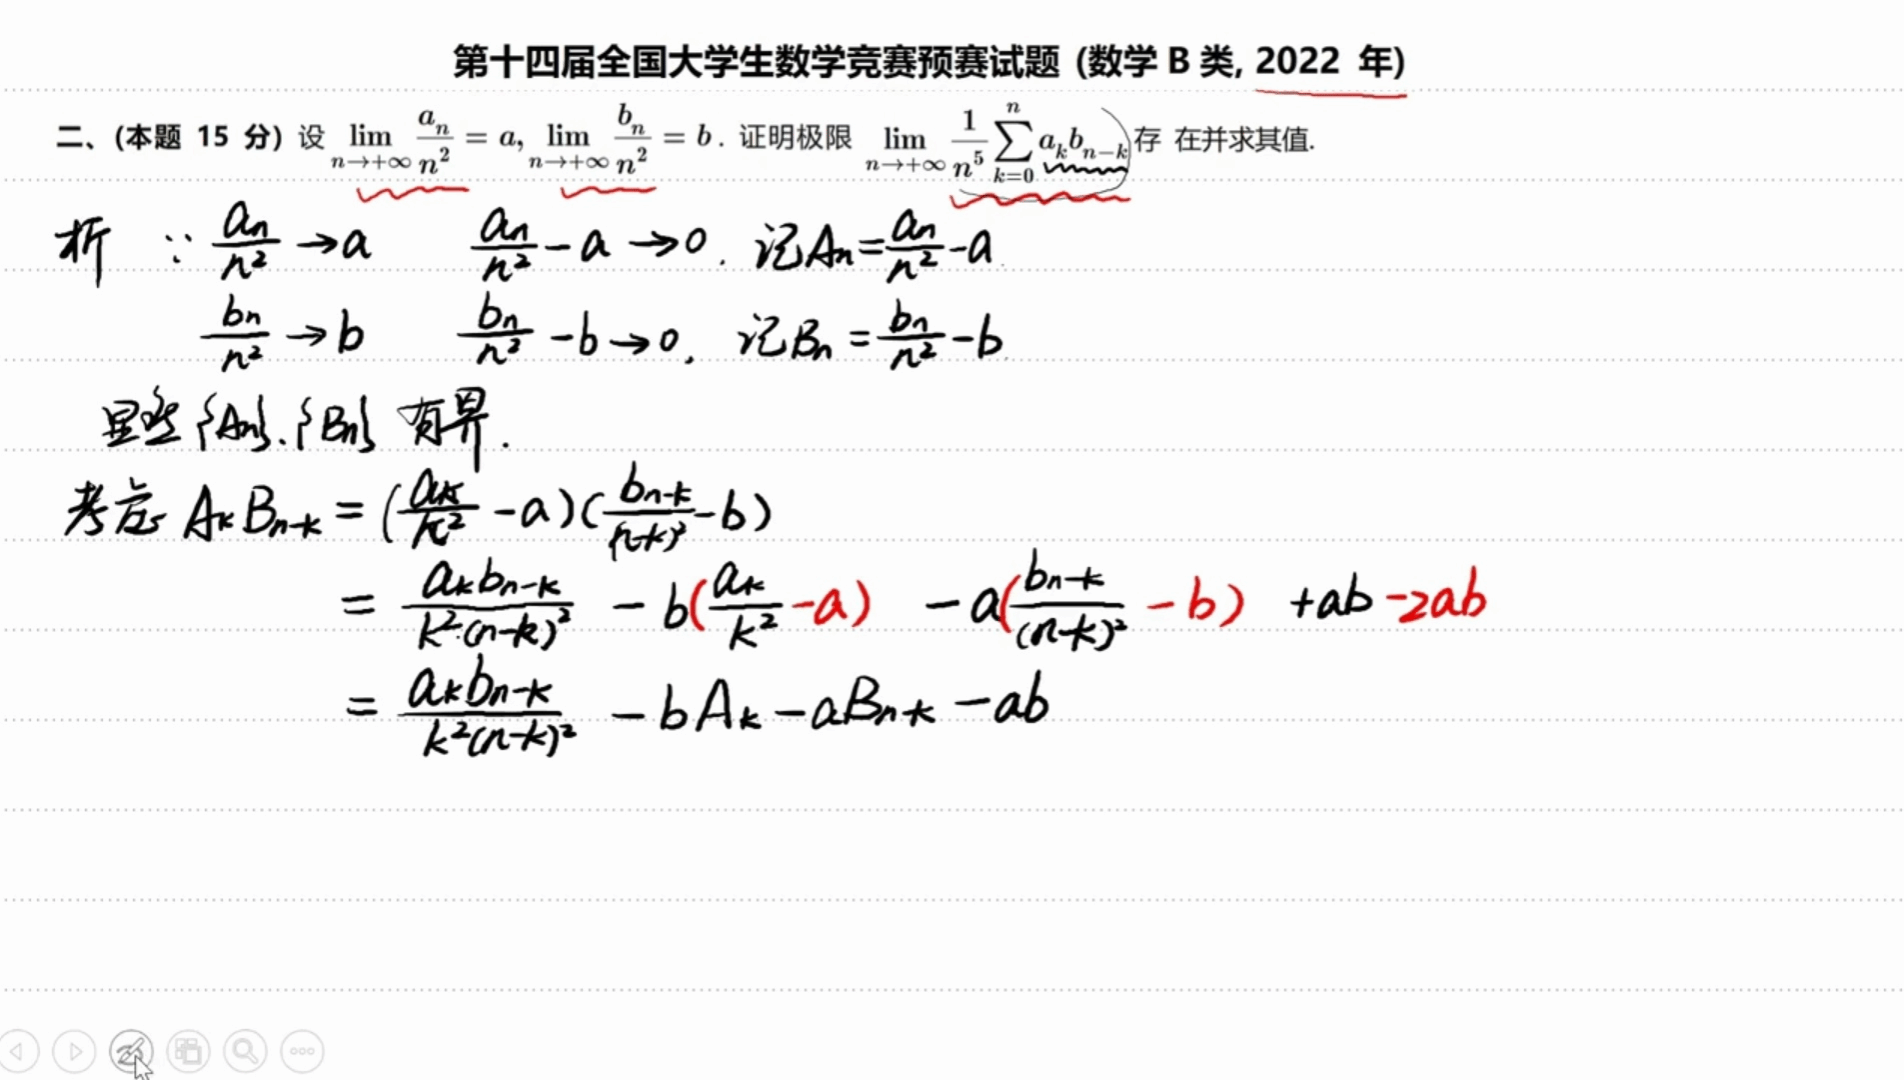 第十四届全国大学生数学竞赛预赛试题 (数学 B 类, 2022 年)
二、(本题 15 分) 设 lim_{n→+∞} a_n/n² = a, lim_{n→+∞} b_n/n² = b. 证明极限 lim_{n→+∞} 1/n⁵ ∑_{k=0}^{n} a_k b_{n-k} 存 在并求其值.
析 ∵ a_n/n² → a a_n/n² - a → 0. 记 A_n = a_n/n² - a
b_n/n² → b b_n/n² - b → 0, 记 B_n = b_n/n² - b
显然 {A_n}、{B_n} 有界.
考虑 A_k B_{n-k} = (a_k/k² - a)(b_{n-k}/(n-k)² - b)
= a_k b_{n-k}/k²·(n-k)² - b(a_k/k² - a) - a(b_{n-k}/(n-k)² - b) + ab - 2ab
= a_k b_{n-k}/k²(n-k)² - bA_k - aB_{n-k} - ab